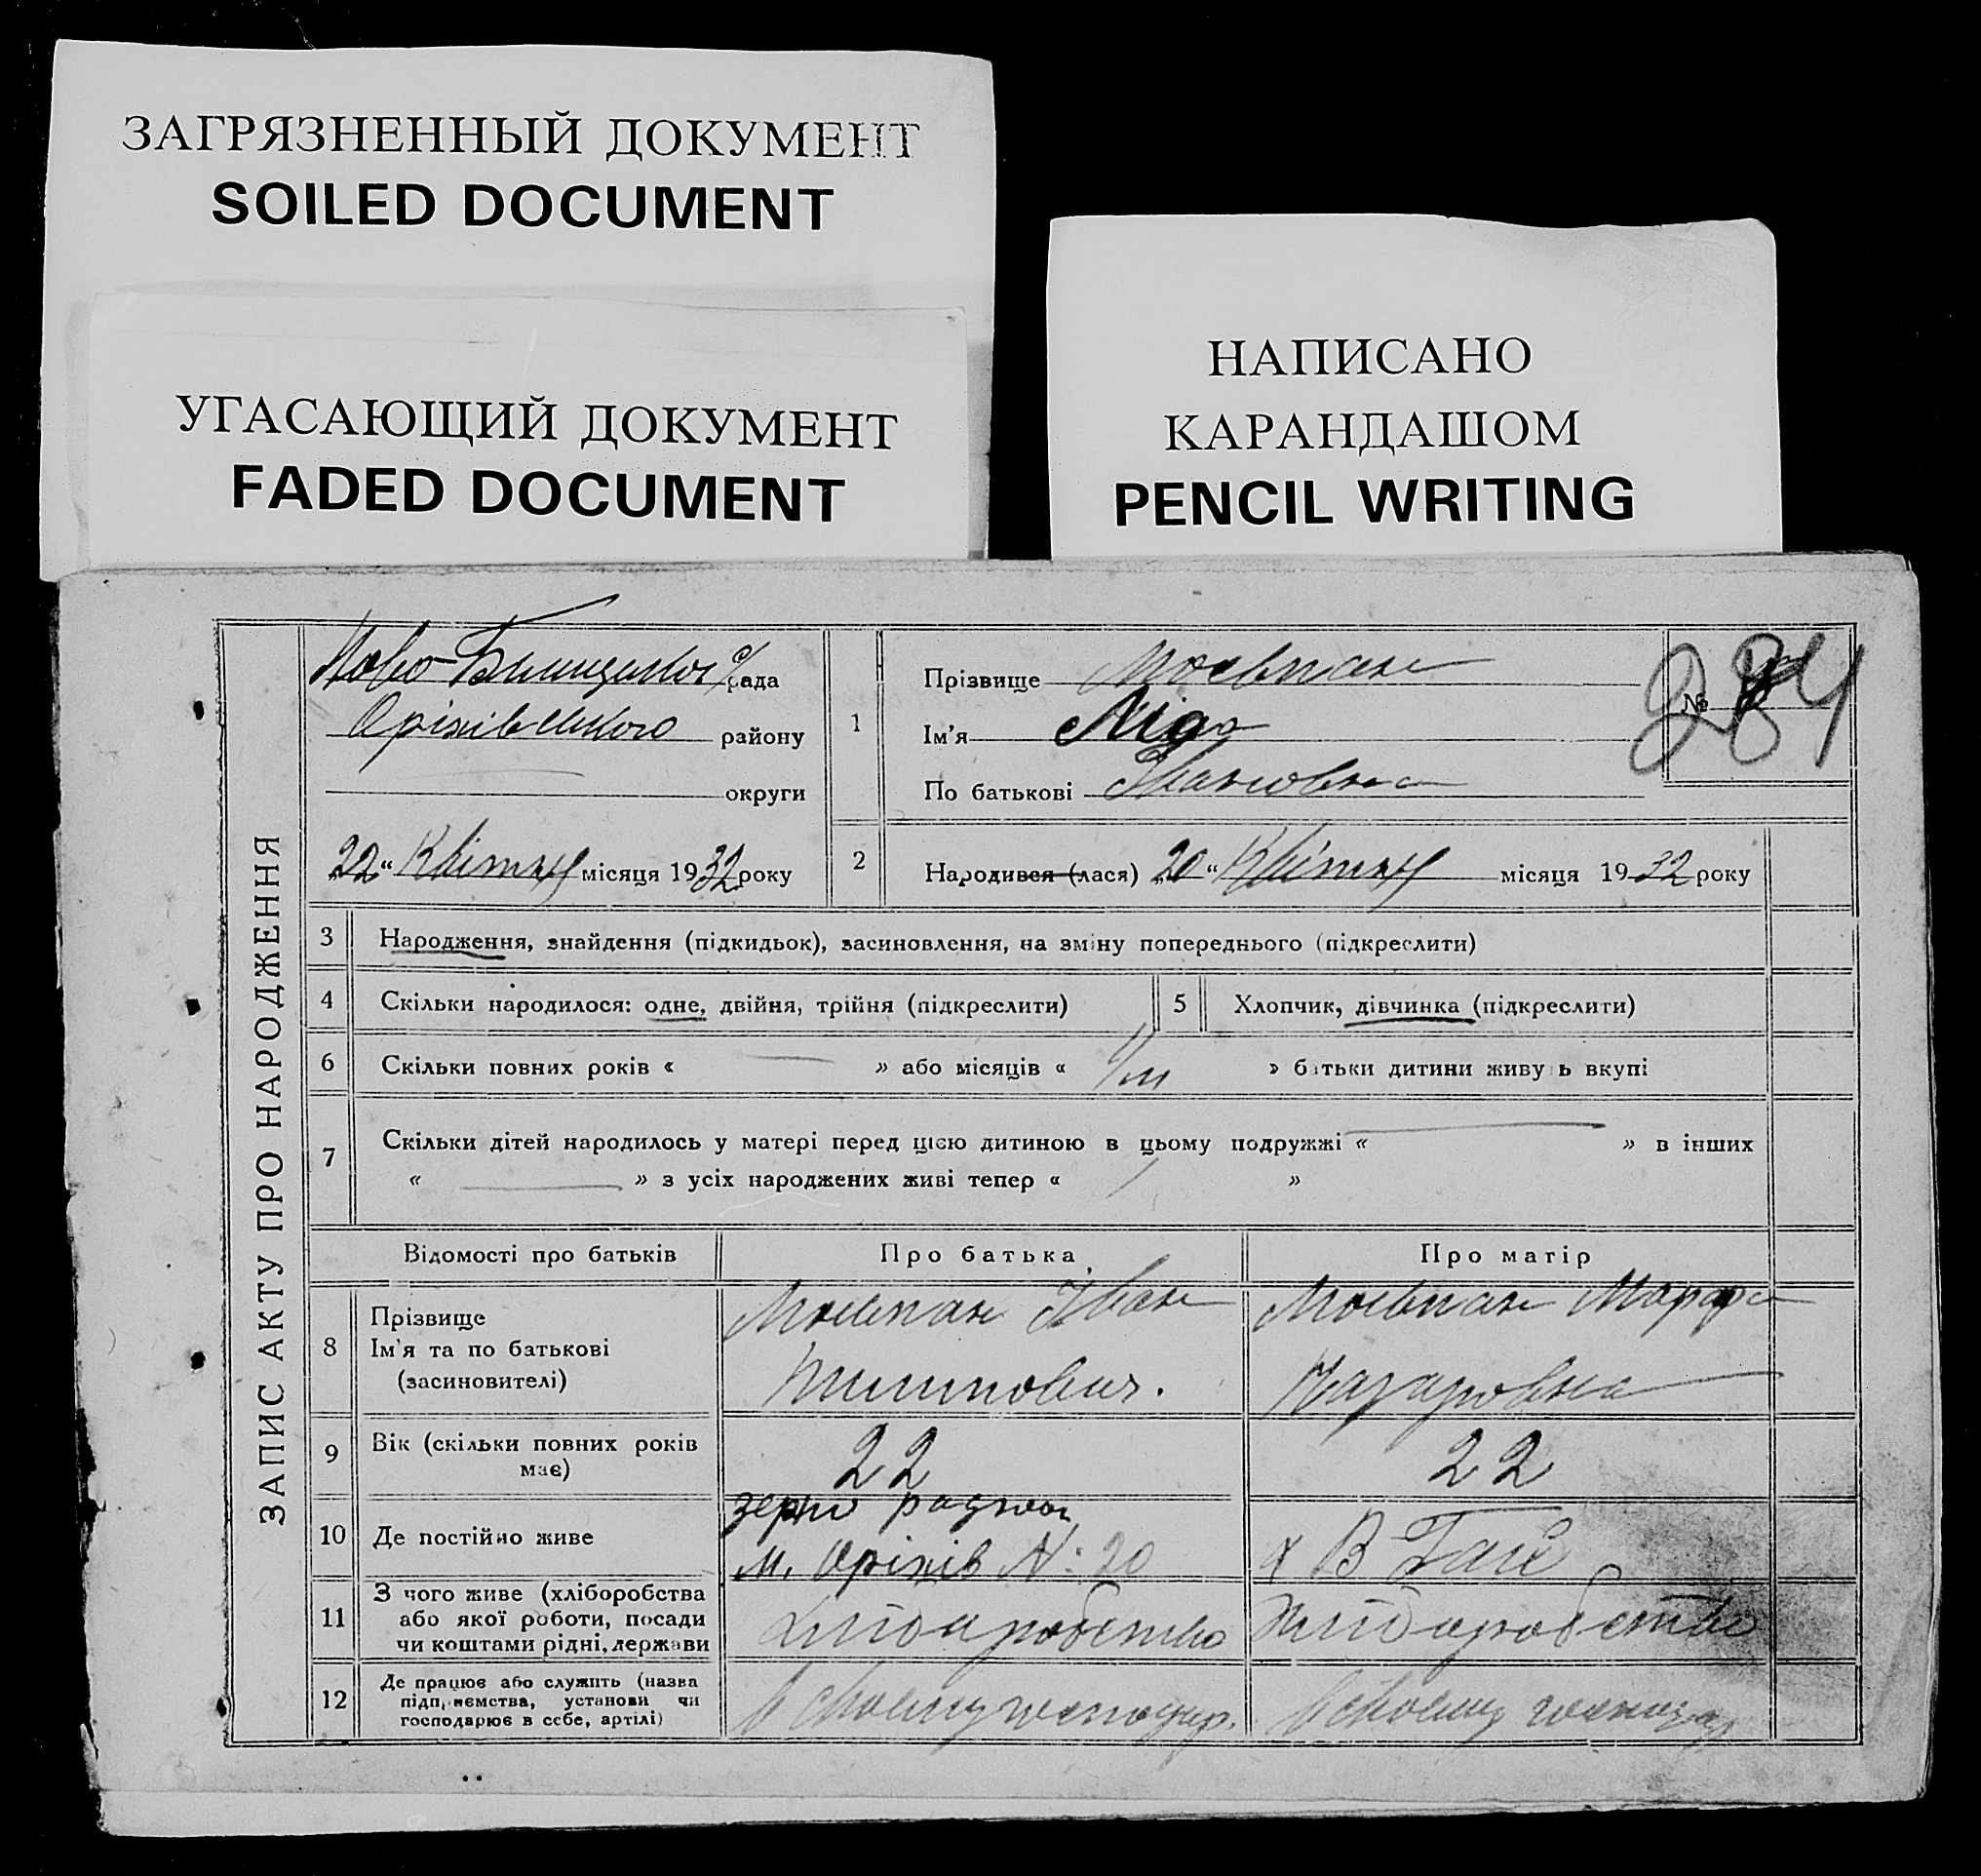 ЗАГРЯЗНЕННЫЙ ДОКУМЕНТ
SOILED DOCUMENT
УГАСАЮЩИЙ ДОКУМЕНТ
FADED DOCUMENT
НАПИСАНО
КАРАНДАШОМ
PENCIL WRITING
ЗАПИС АКТУ ПРО НАРОДЖЕННЯ
Ново- с/рада
Оріхівського району
округи
22 “ Квітня місяця 1932 року
1
Прізвище Мовпан
Ім'я Ліда
По батькові Івановна
№
284
2 Народився (лася) 20 “ Квітня місяця 1932 року
3 Народження, знайдення (підкидьок), засиновлення, на зміну попереднього (підкреслити)
4 Скільки народилося: одне, двійня, трійня (підкреслити) 5 Хлопчик, дівчинка (підкреслити)
6 Скільки повних років « — » або місяців « » батьки дитини живуть вкупі
7 Скільки дітей народилось у матері перед цією дитиною в цьому подружжі « — » в інших
« — » з усіх народжених живі тепер « »
Відомості про батьків Про батька Про матір
8 Прізвище
Ім'я та по батькові
(засиновителі)
Мовпан Іван
Мовпан Марфа
Назаровна
9 Вік (скільки повних років
має)
22 22
10 Де постійно живе
зерно радгосп
м. Оріхів №: 20
х В Гай
11 З чого живе (хліборобства
або якої роботи, посади
чи коштами рідні, держави
Хліборобство Хліборобство
12 Де працює або служить (назва
підприємства, установи чи
господарює в себе, артілі)
В своєму господар. В своєму господар